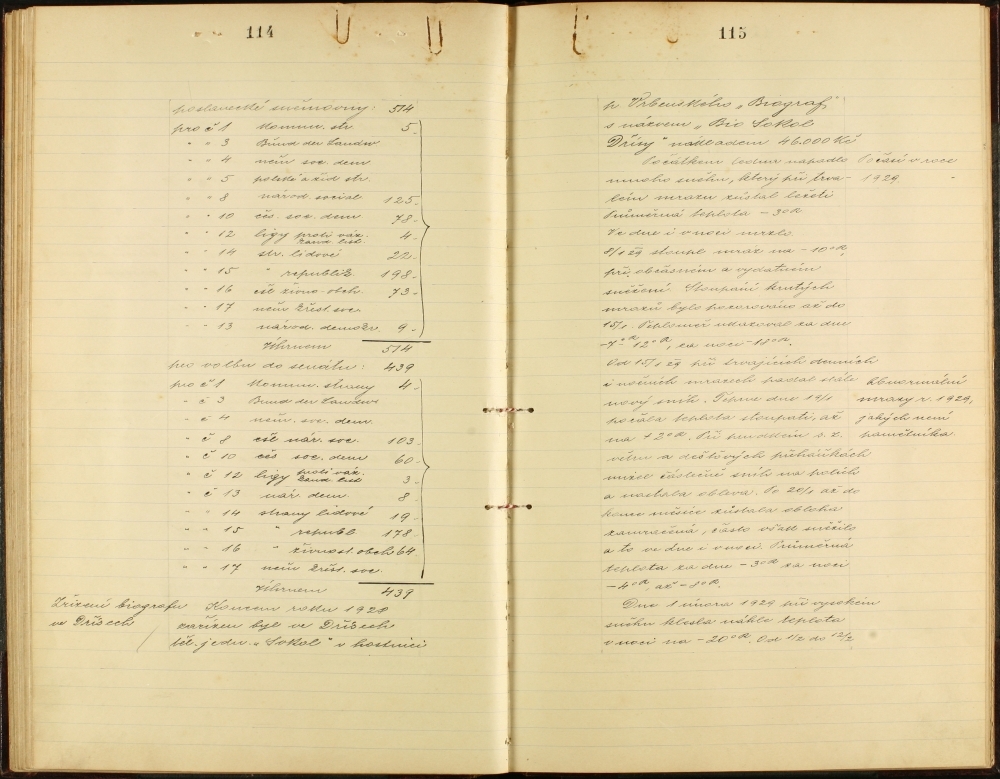 114
poslanecké sněmovny: 514
pro č 1 komun. str. 5.
" " 3 Bund der Landw
" " 4 něm soc. dem
" " 5 polské a žid str.
" " 8 národ. social 125.
" " 10 čes. soc. dem 78.
" " 12 ligy proti váz. kand. list. 4.
" " 14 str. lidové 22.
" " 15 " republik 198.
" " 16 čsl živno-obch. 73.
" " 17 něm křest. soc.
" " 13 národ. demokr. 9.
Úhrnem 514
pro volbu do senátu: 439
pro č 1 komun. strany 4.
" č 3 Bund der Landw
" č 4 něm. soc. dem.
" č 8 čsl nár. soc. 103.
" č 10 čes soc. dem 60.
" č 12 ligy proti váz. kand list 3.
" č 13 nár dem. 8
" " 14 strany lidové 19.
" " 15 " republ 178.
" " 16 " živnost. obch 64
" " 17 něm křest. soc.
Úhrnem 439
Zřízení biografu
ve Dřísech
Koncem roku 1928
zařízen byl ve Dřísech
těl. jedn. „Sokol" v hostinci
115
p. Vrbenského „Biograf"
s názvem „Bio Sokol
Dřísy" nákladem 46.000 Kč
Počátkem ledna napadlo
Počasí v roce
1929
mnoho sněhu, který při trva-
lém mrazu zůstal ležeti
Průměrná teplota – 3°R
Ve dne i v noci mrzlo.
8/1 29 stoupl mraz na – 10°R,
při občasném a vydatném
sněžení Stoupání krutých
mrazů bylo pozorováno až do
15/1. Teploměr ukazoval za dne
–7°–12°R, za noci –18°R.
Od 15/1 29 při trvajících denních
i nočních mrazech padal stále
Abnormální
mrazy r. 1929,
jakých není
pamětníka.
nový sníh. Teprve dne 19/1
počala teplota stoupati, až
na 12°R. Při prudkém s. z.
větru a dešťových přeháňkách
mizel částečně sníh na polích
a nastala obleva. Po 20/1 až do
konce měsíce zůstala obloha
zamračená, často však sněžilo
a to ve dne i v noci. Průměrná
teplota za dne – 3°R za noci
– 4°R, až – 8°R.
Dne 1 února 1929 při vysokém
sněhu klesla náhle teplota
v noci na – 20°R. Od 1/2 do 12/2